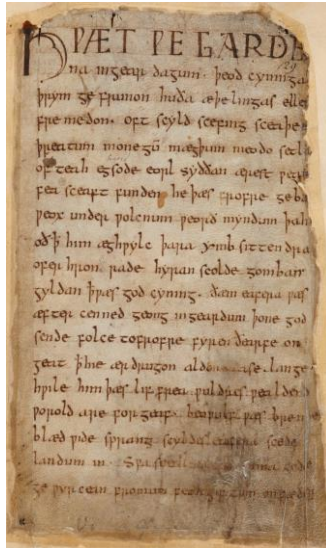 HǷÆT ǷE GARDE
na ingear dagum. þeod cyninga
þrym ge frunon huða æþelingas elle
fre medon. oft scyld scefing sceaþe
þreatum monegū mægþum meodo setla
of teah egsode eorl syððan ærest ƿearð
fea sceaft funden he þæs frofre geba
ƿeox under ƿolcnum ƿeorð myndum þah
oðꝥ him æghƿylc þara ymb sittendra
ofer hron rade hyran scolde gomban
gyldan ꝥ ƿæs god cyning. ðæm eafera ƿæs
æfter cenned geong ingeardum þone god
sende folce tofrofre fyren ðearfe on
geat ꝥ hie ær drugon aldor ase. lange
hƿile him þæs lif frea ƿuldres ƿealdend
ƿorold are for geaf. beoƿulf ƿæs breme
blæd ƿide sprang scyldes eafera scede
landum in. Sƿa sceal uma gode
ge ƿyrcean fromum feoh giftum on fæder